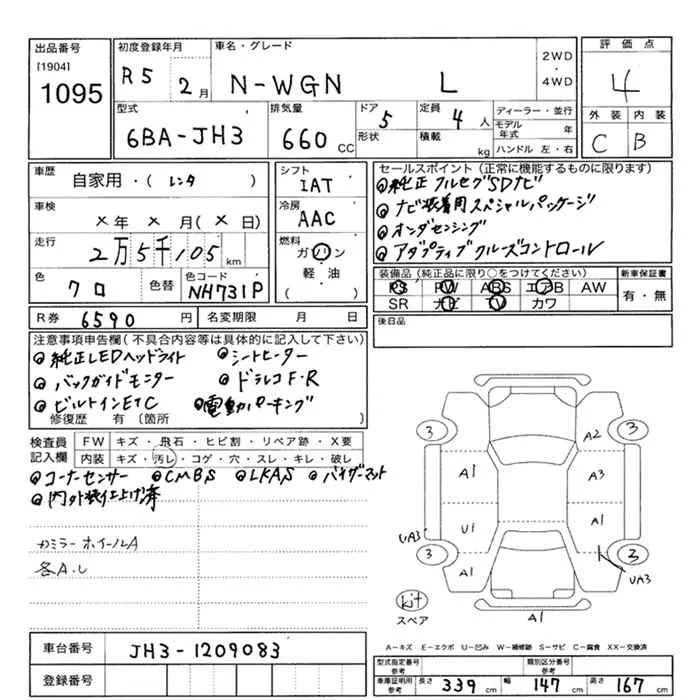 出品番号
[1904]
1095
初度登録年月
R5 2月
車名・グレード
N-WGN L
2WD
・
4WD
評価点
4
外装 内装
C B
型式
6BA-JH3
排気量
660 CC
ドア 5
形状
定員 4 人
積載 kg
ディーラー・並行
モデル年式 年
ハンドル 左・右
車歴
自家用・(レンタ )
車検
×年 ×月(×日)
走行
2万5千105 km
色
クロ
色替
色コード
NH731P
シフト
IAT
冷房
AAC
燃料
ガソリン
軽油
( )
セールスポイント(正常に機能するものに限ります)
◎純正フルセグSDナビ
◎ナビ装着用スペシャルパッケージ
◎ホンダセンシング
◎アダプティブクルーズコントロール
装備品(純正品に限り○をつけてください)
PS PW ABS エアB AW
SR ナビ TV カワ
新車保証書
有・無
後日品
R券 6590 円
名変期限 月 日
注意事項申告欄(不具合内容等は具体的に記入して下さい)
◎純正LEDヘッドライト ◎シートヒーター
◎バックガイドモニター ◎ドラレコF・R
◎ビルトインETC ◎電動パーキング
修復歴 有〔箇所 〕
検査員記入欄
FW キズ・飛石・ヒビ割・リペア跡・X要
内装 キズ・汚レ・コゲ・穴・スレ・キレ・破レ
◎コーナーセンサー ◎CMBS ◎LKAS ◎バイザーマット
◎内外装仕上げ済
カミラー ホイールA
各A.U
3 3
A2
A1 A3
U1 A1
UA3
3 3
A1 A2
UA3
kit
スペア
A1
A-キズ E-エクボ U-凹み W-補修跡 S-サビ C-腐食 XX-交換済
車台番号 JH3-1209083
登録番号
型式指定番号 参考
類別区分番号 参考
車庫証明用 参考
長さ 339 cm 幅 147 cm 高さ 167 cm